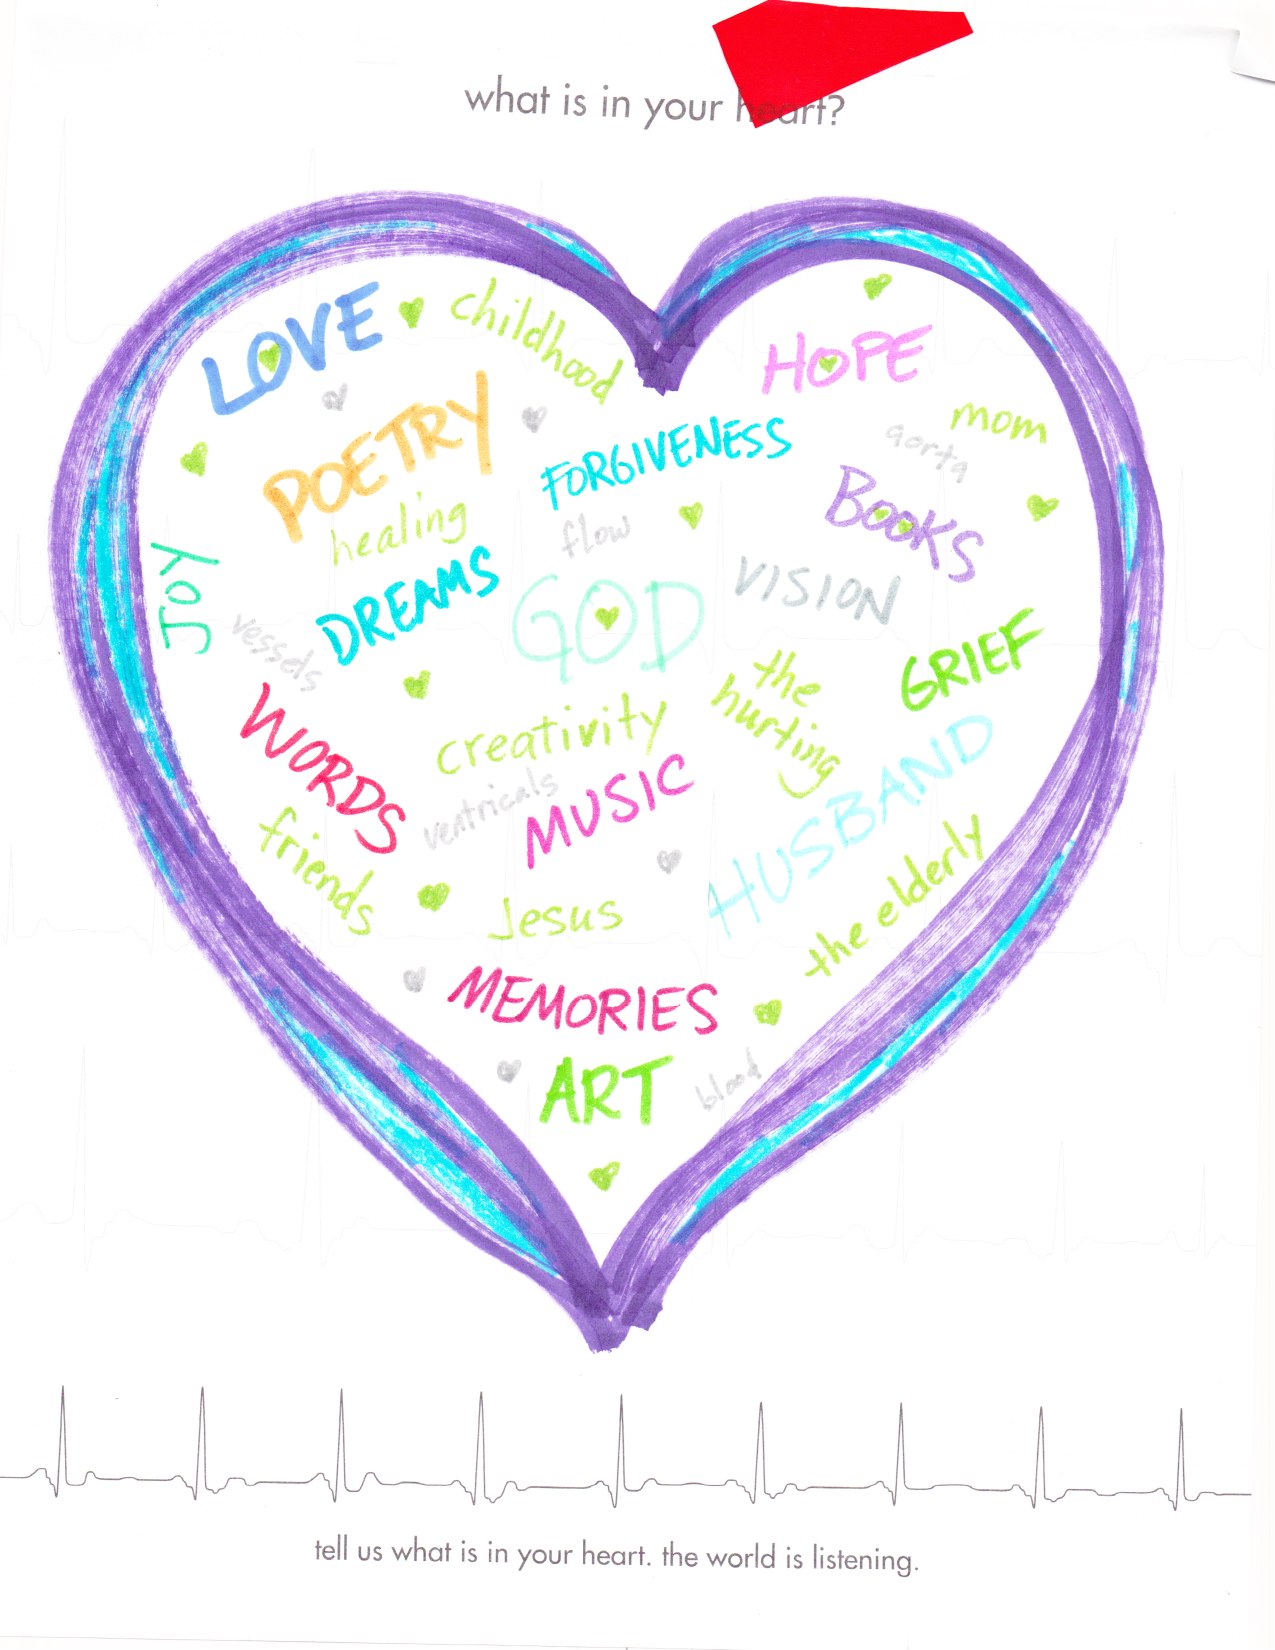 what is in your heart?
LOVE
childhood
HOPE
POETRY
FORGIVENESS
mom
aorta
BOOKS
healing
flow
JOY
DREAMS
GOD
VISION
vessels
GRIEF
the
hurting
WORDS
creativity
ventricals
MUSIC
HUSBAND
friends
Jesus
the elderly
MEMORIES
ART
blood
tell us what is in your heart. the world is listening.